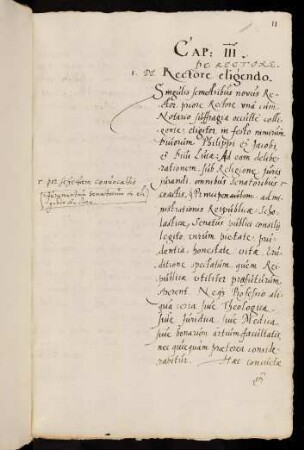 11
CAP: III.
DE RECTORE.
1. De Rectore eligendo.
Singulis semestribus novus Re-
ctor, priore Rectore unà cum
Notario suffragia occultè colli-
gente, eligitor, in festo nimirum
Divorum Philippi et Jacobi
et Divi Lucæ: Ad eam delibe-
rationem sub Religione juris
jurandi, omnibus Senatoribus
coactis, ad-
ministrationi Reipublicæ Scho-
lasticæ, Senatus publici consilio
legito, virum pietate, pru-
dentia, honestate vitæ, Eru-
ditione spectatum, quem Rei-
publicæ utiliter præfuturum
sperent. Neque Professio ali-
qua certa sive Theologicæ,
sive Juridicæ, sive Medicæ,
sive bonarum artium facultatis,
nec quicquam præterea conside-
rabitur. Hac consueta
1. per schedam convocatis
Senatorum in eli-